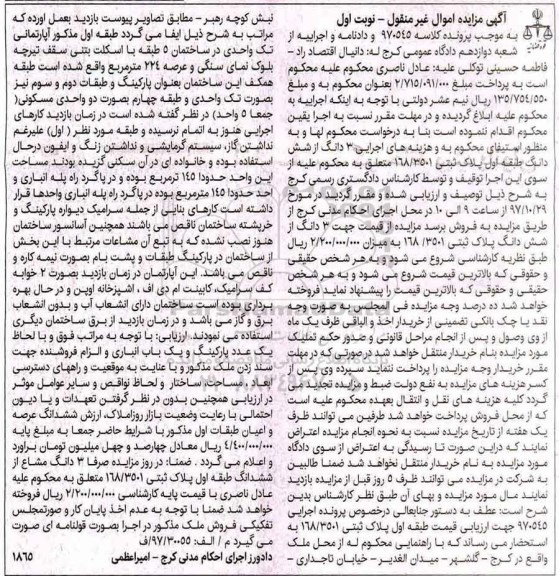 آگهی مزایده اموال غیر منقول - نوبت اول
به موجب پرونده کلاسه ۹۷۰۵۴۵ و دادنامه و اجراییه از
شعبه دوازدهم دادگاه عمومی کرج له: دانیال اقتصاد راد -
فاطمه حسینی توکلی علیه: عادل ناصری محکوم علیه محکوم
است به پرداخت مبلغ ۲/۷۱۵/۰۹۱/۰۰۰ بعنوان محکوم به و مبلغ
۱۳۵/۷۵۴/۵۵۰ ریال نیم عشر دولتی با توجه به اینکه اجراییه به
محکوم علیه ابلاغ گردیده و در مهلت مقرر نسبت به اجرا یقین
محکوم اقدام ننموده است بنا به درخواست محکوم لها و به
منظور استیفای محکوم به و هزینه های اجرایی ۳ دانگ از شش
دانگ طبقه اول پلاک ثبتی ۱۶۸/۳۵۰۱ متعلق به محکوم علیه از
سوی این اجرا توقیف و توسط کارشناس دادگستری رسمی کرج
به شرح ذیل توصیف و ارزیابی شده و مقرر گردید در مورخ
۹۷/۱۰/۲۹ از ساعت ۹ الی ۱۰ در محل اجرای احکام مدنی کرج از
طریق مزایده به فروش برسد مزایده از قیمت جهت ۳ دانگ از
شش دانگ پلاک ثبتی ۱۶۸/۳۵۰۱ به میزان ۲/۲۰۰/۰۰۰/۰۰۰ ریال
طبق نظریه کارشناسی شروع می شود و به هر شخص حقیقی
و حقوقی که بالاترین قیمت شروع می شود و به هر شخص
حقیقی و حقوقی که بالاترین قیمت را پیشنهاد نماید فروخته
خواهد شد ده درصد وجه مزایده فی المجلس بصورت وجه
نقد یا چک بانکی تضمینی از خریدار اخذ و الباقی ظرف یک ماه
از وی وصول و پس از انجام مراحل قانونی و صدور حکم تملیک
مورد مزایده بنام خریدار منتقل خواهد شد در صورتی که در مهلت
مقرر خریدار وجه مزایده را پرداخت ننماید سپرده وی پس از
کسر هزینه های مزایده به نفع دولت ضبط و مزایده تجدید می
گردد کلیه هزینه های نقل و انتقال بعهده محکوم علیه است
که از محل فروش پرداخت خواهد شد طرفین می توانند ظرف
یک هفته از تاریخ مزایده نسبت به نحوه انجام مزایده اعتراض
نمایند که دراین صورت تا رسیدگی به اعتراض از سوی دادگاه
مورد مزایده به نام خریدار منتقل نخواهد شد ضمنا طالبین
به شرکت در مزایده می توانند ظرف ۵ روز قبل از مزایده بازدید
نمایند مال مورد مزایده و بهای آن طبق نظر کارشناس بدین
شرح است: عطف به دستور جنابعالی درخصوص پرونده اجرایی
۹۷۰۵۴۵ جهت ارزیابی قیمت طبقه اول پلاک ثبتی ۱۶۸/۳۵۰۱ به
استحضار می رساند که با راهنمایی محکوم له از محل ملک
واقع در کرج - گلشهر - میدان الغدیر - خیابان تاجداری -
نبش کوچه رهبر - مطابق تصاویر پیوست بازدید بعمل آورده که
مراتب به شرح ذیل ایفا می گردد طبقه اول مذکور آپارتمانی
تک واحدی در ساختمان ۵ طبقه با اسکلت بتنی سقف تیرچه
بلوک نمای سنگی و عرصه ۲۲۴ مترمربع واقع شده است طبقه
همکف این ساختمان بعنوان پارکینگ و طبقات دوم و سوم نیز
بصورت تک واحدی و طبقه چهارم بصورت دو واحدی مسکونی(
جمعا ۵ واحد) در نظر گرفته شده است در زمان بازدید کارهای
اجرایی هنوز به اتمام نرسیده و طبقه مورد نظر ( اول) علیرغم
نداشتن گاز، سیستم گرمایشی و نداشتن زنگ و ایفون درحال
استفاده بوده و خانواده ای در آن سکنی گزیده بودند مساحت
این واحد حدودا ۱۴۵ ترمربع بوده و در پاگرد راه پله انباری و
احد حدودا ۱۴۵ مترمربع بوده در پاگرد راه پله انباری واحدها قرار
داشته است کارهای بنایی از جمله سرامیک دیواره پارکینگ و
خرپشته ساختمان ناقص می باشند همچنین آسانسور ساختمان
هنوز نصب نشده که به تبع آن مشاعات مرتبط با این بخش
از ساختمان در پارکینگ طبقات و پشت بام بصورت نیمه کاره و
ناقص می باشد. این آپارتمان در زمان بازدید بصورت ۲ خوابه
کف سرامیک، کابینت ام دی اف ، اشپزخانه اوپن و در حال بهره
برداری بوده است ساختمان دارای انشعاب آب و بدون انشعاب
برق و گاز می باشد و در زمان بازدید از برق ساختمان دیگری
استفاده می نمودند. ارزیابی: با توجه به مراتب فوق و با لحاظ
یک عدد پارکینگ و یک باب انباری و الزام فروشنده جهت
سند زدن ملک مذکور و با عنایت به موقعیت و راههای دسترسی
ابعاد ، مساحت ساختار و لحاظ نواقص و سایر عوامل موثر
در ارزیابی همچنین بدون در نظر گرفتن تعهدات و یا دیون
احتمالی با رعایت وضعیت بازار روزاملاک، ارزش ششدانگ عرصه
و اعیان طبقات اول مذکور با شرایط حاضر جمعا به مبلغ پایه
۴/۴۰۰/۰۰۰/۰۰۰ ریال معادل چهارصد و چهل میلیون تومان براورد
و اعلام می گردد . ضمنا: در روز مزایده صرفا ۳ دانگ مشاع از
ششدانگ طبقه اول پلاک ثبتی ۱۶۸/۳۵۰۱ متعلق به محکوم علیه
عادل ناصری با قیمت پایه کارشناسی ۲/۲۰۰/۰۰۰/۰۰۰ ریال فروخته
خواهد شد ضمنا با توجه به عدم اخذ پایان کار و صورتمجلس
تفکیکی فروش ملک مذکور در اجرا بصورت قولنامه ای صورت
می گیرد م / الف: ۹۷/۳۰۰۵۵/ف
دادورز اجرای احکام مدنی کرج - امیراعظمی ۱۸۶۵